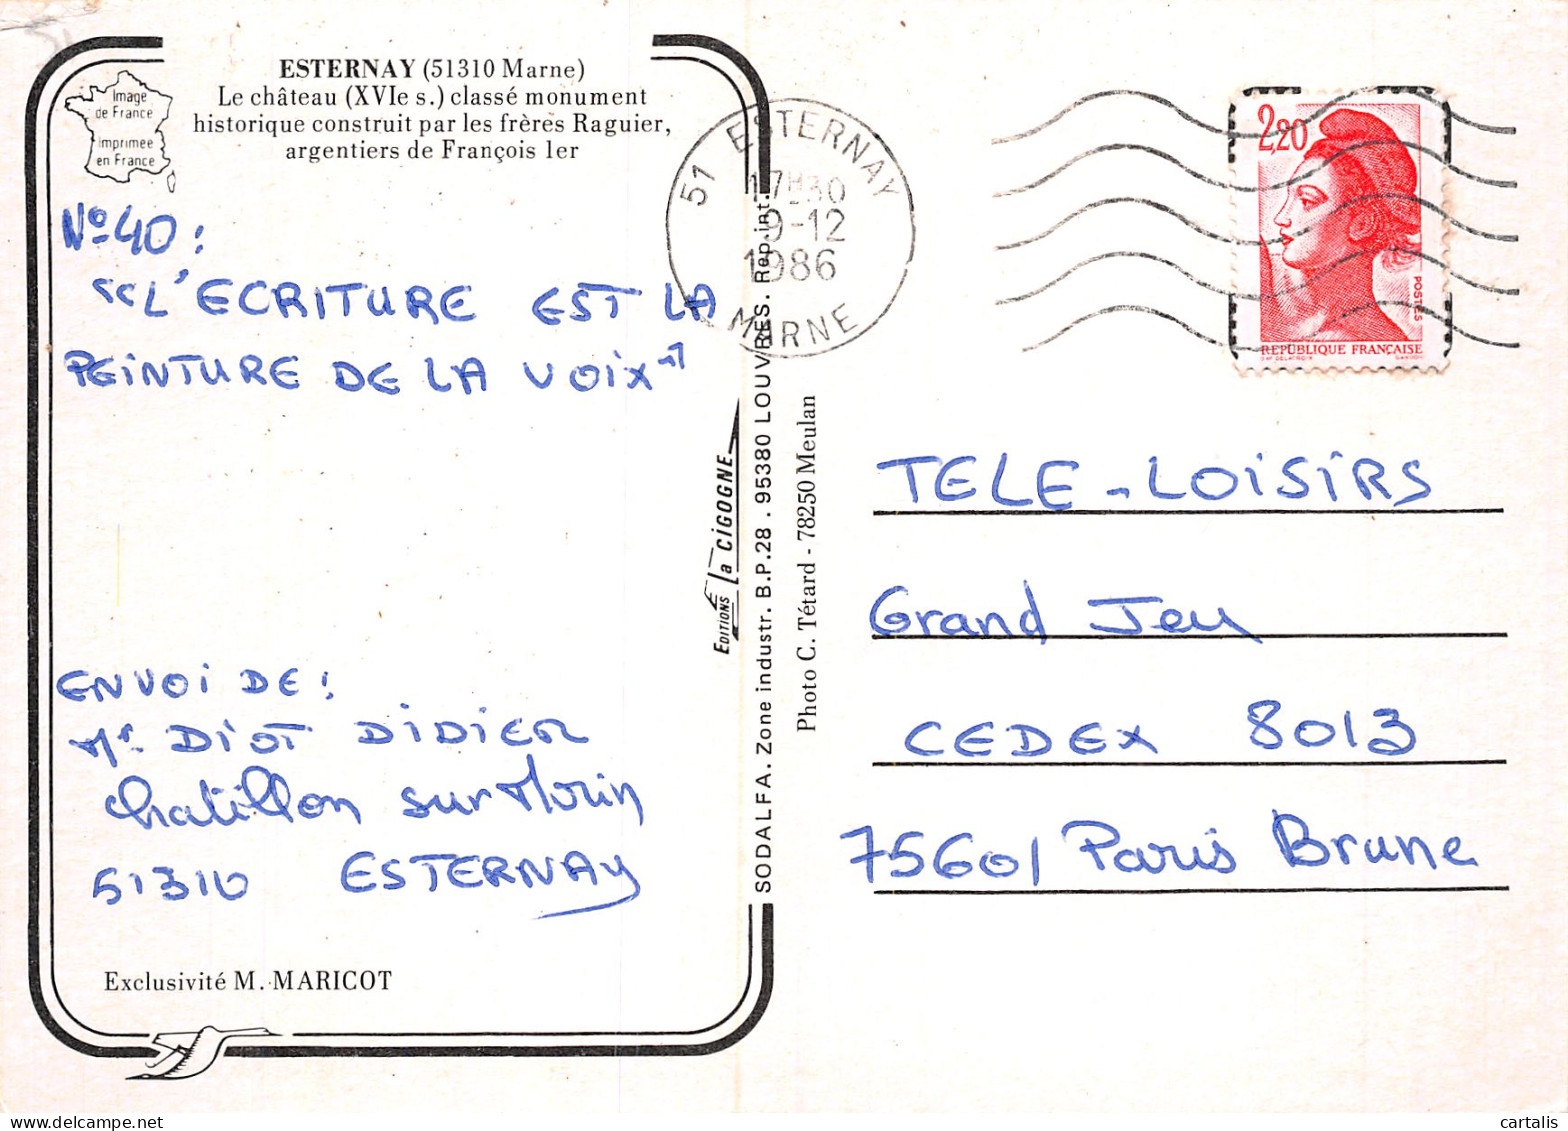 ESTERNAY (51310 Marne)
Le château (XVIe s.) classé monument
historique construit par les frères Raguier,
argentiers de François 1er
Image
de France
Imprimée
en France
N° 40 :
"L'ECRITURE EST LA
PEINTURE DE LA VOIX"
ENVOI DE :
Mr DIOT DIDIER
Chatillon sur Morin
51310 ESTERNAY
Exclusivité M. MARICOT
EDITIONS La CIGOGNE
SODALFA. Zone industr. B.P.28 . 95380 LOUVRES. Rep.int.
Photo C. Tétard - 78250 Meulan
51 ESTERNAY
17H30
9-12
1986
MARNE
2,20
POSTES
REPUBLIQUE FRANÇAISE
TELE-LOISIRS
Grand Jeu
CEDEX 8013
75601 Paris Brune
cartalis